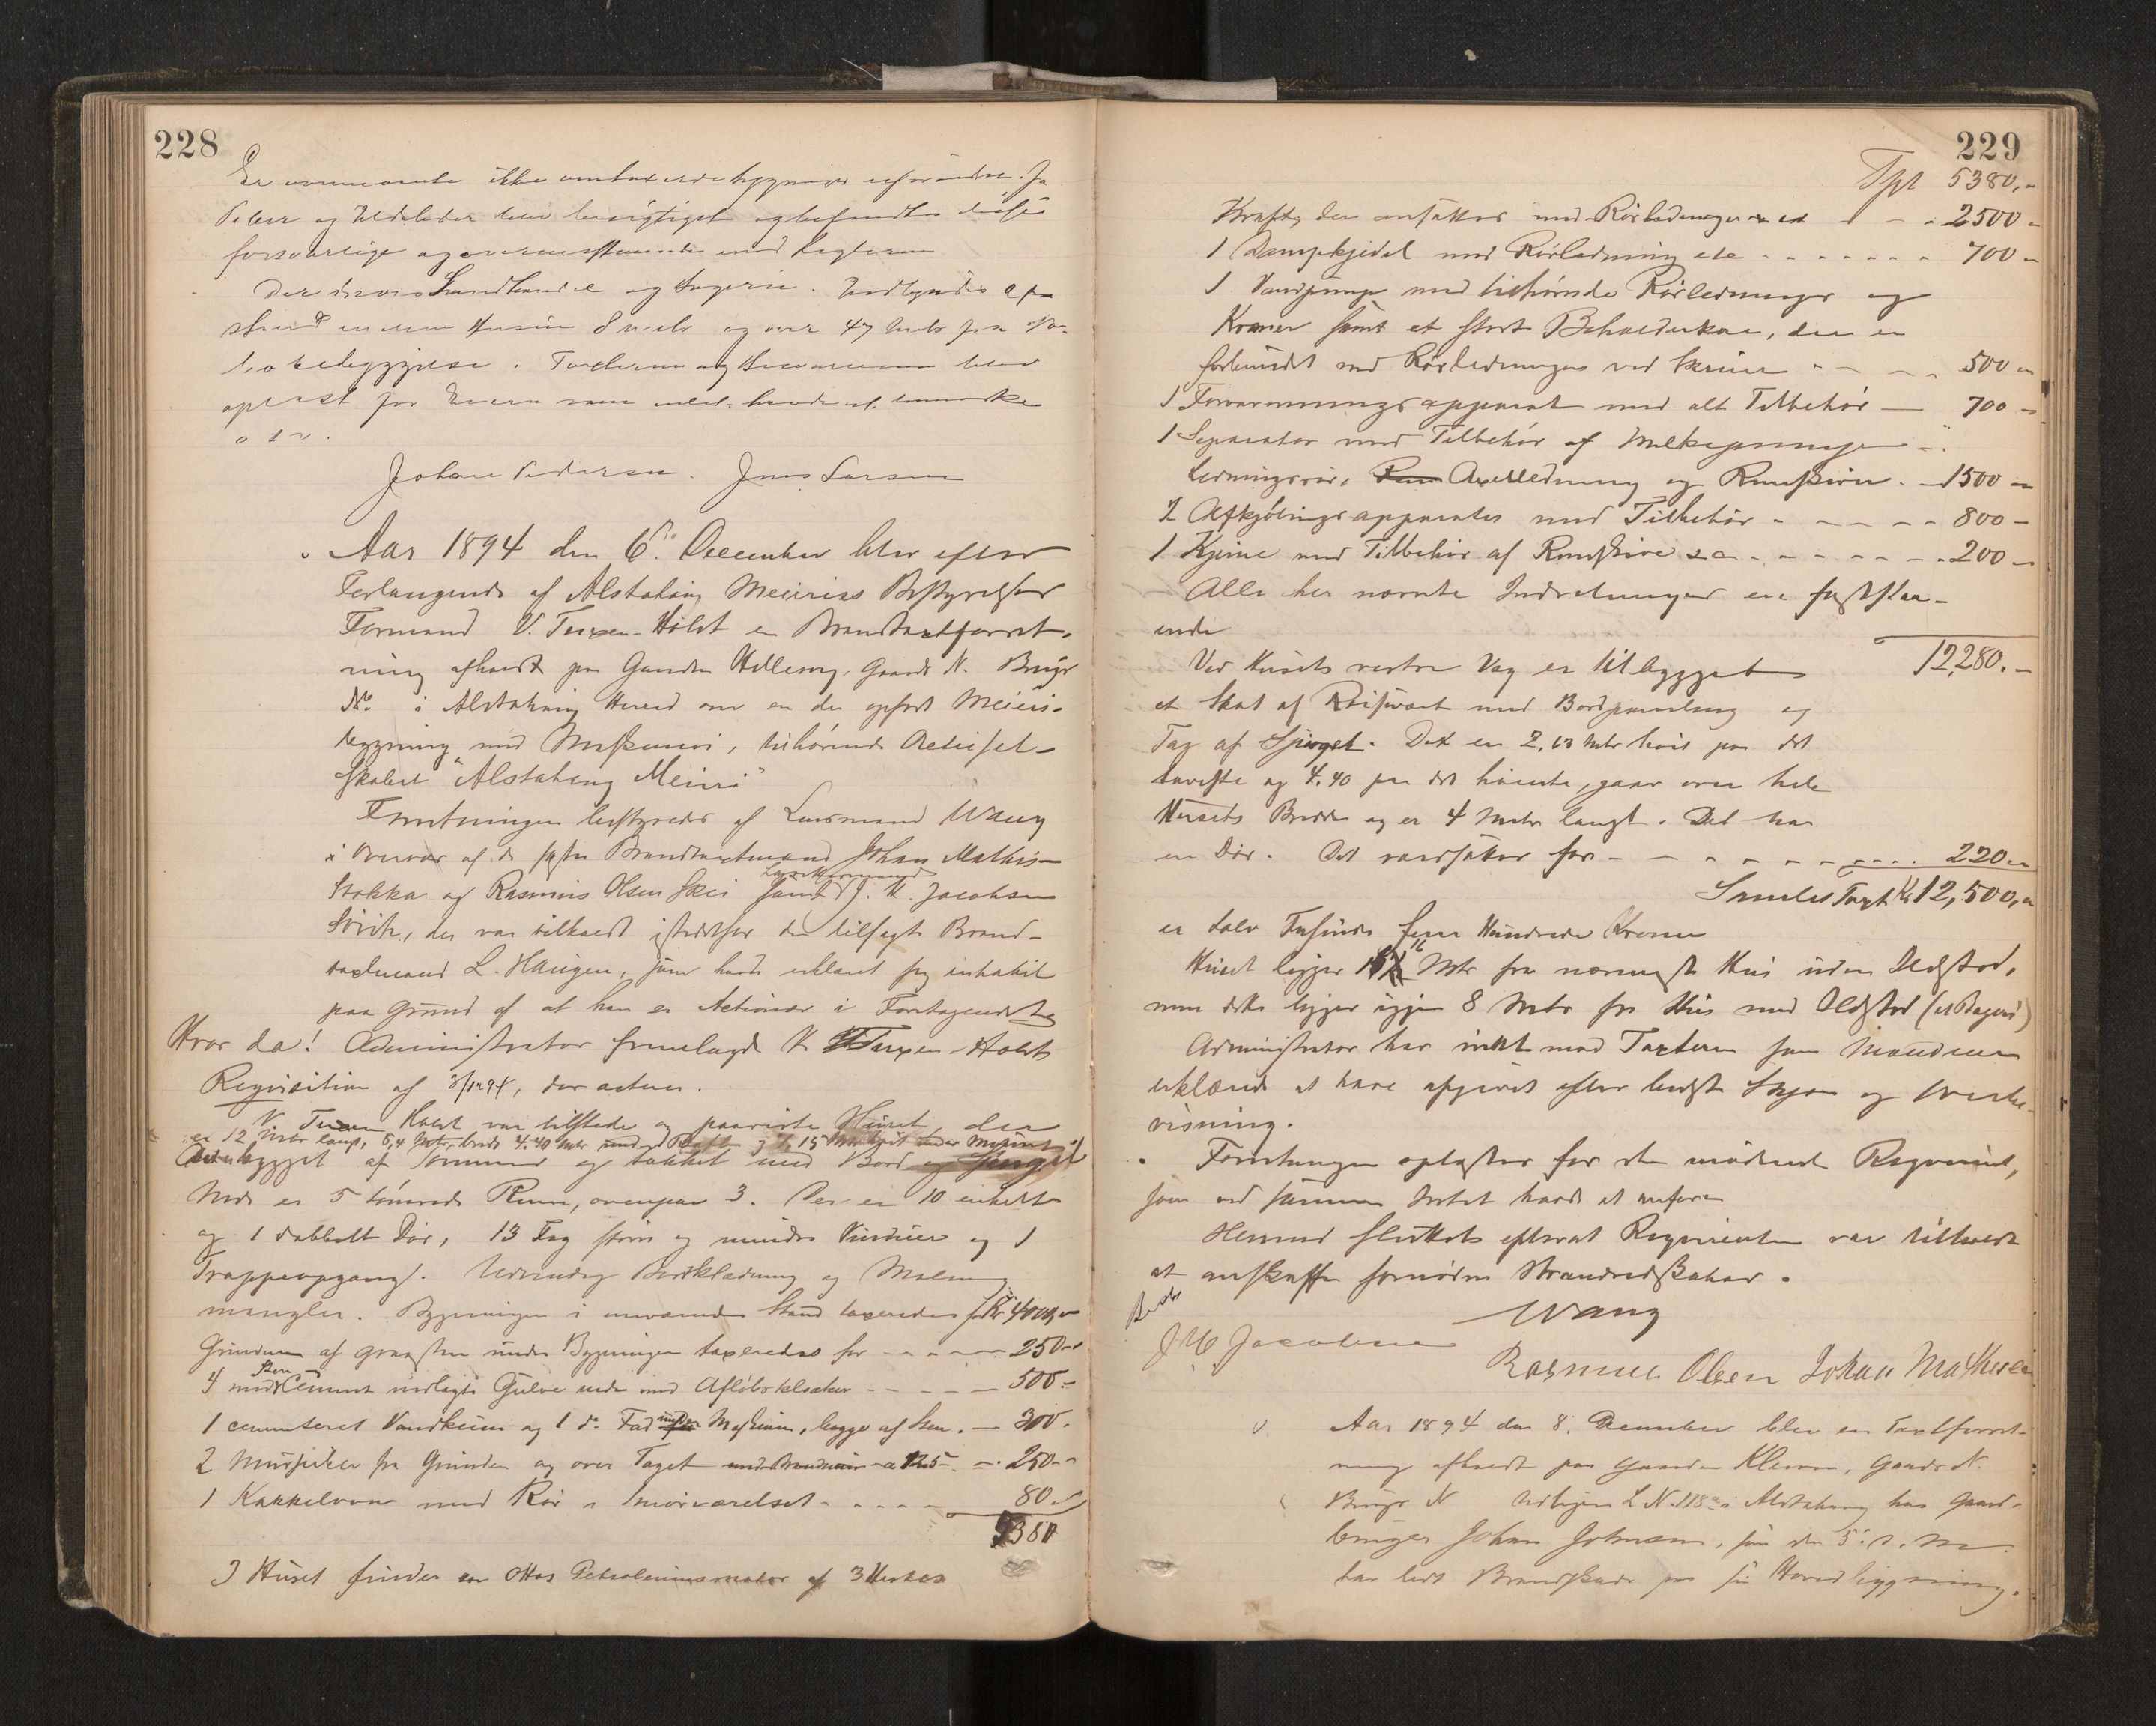 228
Er ovennævnte ikke omtaxerede bygninger uforandret. Ja
Piber og Ildsteder blev besigtiget og befundtes disse
forsvarlige og overensstemmende med Regleren
Der drives Landhandel og Bageri.
8 metr og over 47 Metr fra
bebyggelse. Taxterne og
oplæst for Eieren som intet havde at bemærke
Johan Pedersen. Jens Larsen
Aar 1894 den 6te December blev efter
Forlangende af Alstahaug Meieries Bestyrelses
Formand V. Tuxen-Holst en Brandtaxtforret-
ning afholdt paa Gaarden Hellesvig, Gaards N. Brugs
No. i Alstahaug Herred over en der opført Meieri-
bygning med Maskineri, tilhørende Actiesel-
skabet "Alstahaug Meieri"
Forretningen bestyredes af Lensmand Wang
i Overvær af de faste Brandtaxtmænd Johan Mathis-
Stokka og Rasmus Olsen Skei samt J. M. Jacobsen
Søvik, der var tilkaldt istedetfor den tilsagte Brand-
taxtmand L. Haugen, som havde erklæret sig inhabil
paa Grund af at han er Actionær i Foretagendet
Hvor da! Administrator fremlagde V. Tuxen-Holsts
Reqvisition af 3/12 94, der acteres.
V. Tuxen Holst var tilstede og paaviste Huset, der
er 12 Metr langt, 8,4 Metr bredt 4.40 Mtr
bygget af Tømmer og tækket med Bord og Spirgel
Nede er 5 tømrede Rum, ovenpaa 3. Der er 10 enkelte
og 1 dobbelt Dør, 13 Fag større og mindre Vinduer og 1
Trappeopgang. Udvendig Bordklædning og Maling
mangler. Bygningen i nuværende Stand taxeredes for Kr 4000,-
Grunden af graasten under Bygningen taxeredes for - - - - 250-
4 med Sten Cement indlagte Gulve nede med Afløbsklokker - - - - 500-
1 cementeret Vandkum og 1 do Fad under Maskinen, bygget af Sten. - 300.
2 Murpiber fra Grunden og over Taget med Brandmur a 125 - - 250-
1 Kakkelovn med Rør i Smørværelset - - - - 80
5380
I Huset findes en Ottos Petroleumsmotor af 3 Hestes
229
Tpt 5380,-
Kraft, der ansættes med Rørledninger - - 2500-
1 Dampkjedel med Rørledning etc - - - - - - - 700-
1 Vandpumpe med tilhørende Rørledninger og
Kraner samt et stort Beholderkar, der er
forbundet med Rørledninger ved Skruer - - - - 500-
1 Forvarmningsapparat med alt Tilbehør - 700-
1 Separator med Tilbehør af Melkepumpe
Ledningsrør, Axelledning og Remskiver. - 1500-
2 Afkjølingsapparater med Tilbehør - - - - - 800-
1 Kjerne med Tilbehør af Remskive - - - - - - 200-
Alle her nævnte Indretninger er faststtaa-
ende
12,280.-
Ved Husets vestre Væg er tilbygget
et Skot af Reisværk med Bordpaneling og
Tag af Spirgel. Det er 2,63 Mtr høit paa det
laveste og 4.40 paa det høieste, gaar over hele
Husets Bredde og er 4 Metr langt. Det har
en Dør. Det værdsættes for - - - - - - - 220-
Samlet Taxt Kr 12,500,-
er tolv Tusinde fem Hundrede Kroner
Huset ligger 16 Mtr fra nærmeste Hus uden Ildsted,
men dette ligger igjen 8 Metr fra Hus med Ildsted (et Bageri)
Administrator har intet mod Taxten som Mændene
erklærede at have afgivet efter bedste Skjøn og Overbe-
visning.
Forretningen oplæstes for den mødende Reqvirent,
som ved samme Intet havde at anføre
Hermed sluttets efterat Reqvirenten var tilholdt
at anskaffe fornødne Brandredskaber.
Wang
J M Jacobsen
Rasmus Olsen Johan Mathisen
Aar 1894 den 8. December blev en Taxtforret-
ning afholdt paa Gaarden Kleven, Gaards N.
Brugs N L. N. 118a i Alstahaug hos Gaard-
bruger Johan Johnsen, som den 5. d. M
har lidt Brandskade paa sin Hovedbygning.